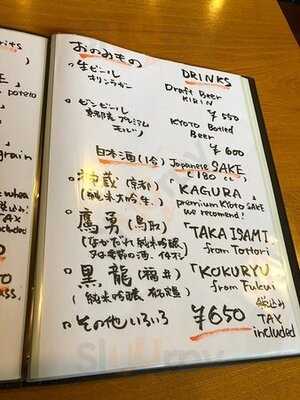 おのみもの
DRINKS
生ビール
キリンラガー
Draft Beer
KIRIN
¥550
ビンビール
京都産プレミアム
KYOTO Botled
Beer
¥600
日本酒(1合) Japanese SAKE
(180 cc)
蔵(京都)
(純米大吟生.)
"KAGURA"
premium Kyoto SAKE
we recomend!
鷹勇(鳥取)
(なかだれ純米吟醸
"TAKAISAMI
from Tottori
黒龍(福井)
(純米吟醸
"KOKURYU
from Fukui
その他いろいろ
¥650
税込み
TAX
included
rits
potato
grain
when
税込み!
TAX